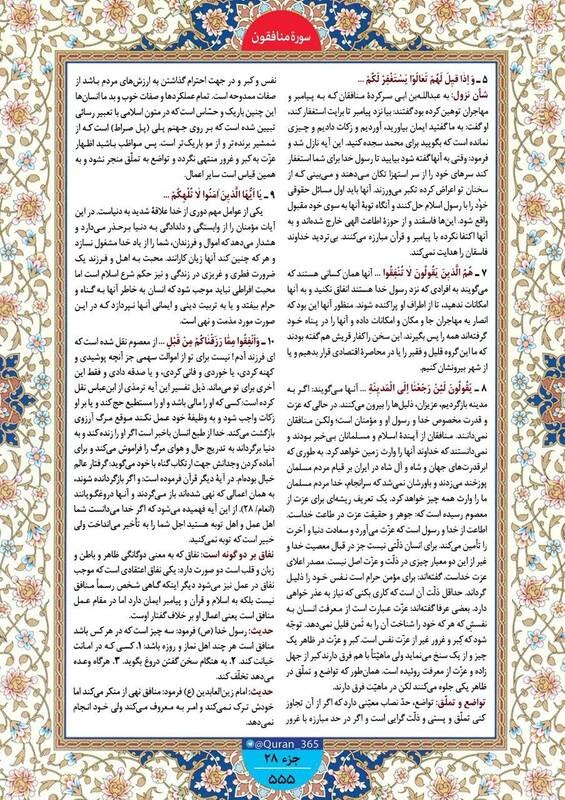 سورهٔ منافقون
۵ ـ وَ اِذا قیلَ لَهُم تَعالَوْا یَسْتَغْفِرْ لَکُمْ ...
شأن نزول: به عبدالله‌بن ابی سرکردهٔ منافقان که به پیامبر و
مهاجران توهین کرده بود گفتند: بیا نزد پیامبر تا برایت استغفار کند،
او گفت: به ما گفتید ایمان بیاورید، آوردیم و زکات دادیم و چیزی
نمانده است که بگویید برای محمد سجده کنید. این آیه نازل شد و
فرمود: وقتی به آنها گفته شود بیایید تا رسول خدا برای شما استغفار
کند سرهای خود را از سر استهزا تکان می‌دهند و می‌بینی که از
سخنان تو اعراض کرده تکبر می‌ورزند. آنها باید اول مسائل حقوقی
خود را با رسول اسلام حل کنند و آنگاه توبهٔ آنها به سوی خود مقبول
واقع شود. این‌ها فاسقند و از حوزهٔ اطاعت الهی خارج شده‌اند و به
آنها اکتفا نکرده با پیامبر و قرآن مبارزه می‌کنند. بی‌تردید خداوند
فاسقان را هدایت نمی‌کند.
۷ ـ هُمُ الَّذینَ یَقُولُونَ لا تُنْفِقُوا ... آنها همان کسانی هستند که
می‌گویند به افرادی که نزد رسول خدا هستند انفاق نکنید و به آنها
امکانات ندهید، تا از اطراف او پراکنده شوند. منظور آنها این بود که
انصار به مهاجران جا و مکان و امکانات داده و آنها را در پناه خود
گرفته‌اند همه را پس بگیرند. این سخن را کفار قریش هم گفته بودند
که ما این گروه قلیل و فقیر را یا در محاصرهٔ اقتصادی قرار بدهیم و یا
از شهر بیرونشان کنیم.
۸ ـ یَقُولُونَ لَئِنْ رَجَعْنا اِلَی الْمَدینَةِ ... آنها می‌گویند: اگر به
مدینه بازگردیم، عزیزان، ذلیل‌ها را بیرون می‌کنند. در حالی که عزت
و قدرت مخصوص خدا و رسول او و مؤمنان است؛ ولکن منافقان
نمی‌دانند. منافقان از آیندهٔ اسلام و مسلمانان بی‌خبر بودند و
نمی‌دانستند که خداوند آنها را وارث زمین خواهد کرد. به طوری که
ابرقدرت‌های جهان و شاه و آل شاه در ایران بر قیام مردم مسلمان
پوزخند می‌زدند و باورشان نمی‌شد که سرانجام، خدا مردم مسلمان
ما را وارث همه چیز خواهد کرد. یک تعریف ریشه‌ای برای عزت از
معصوم رسیده است که: جوهر و حقیقت عزت در طاعت خداست.
اطاعت از خدا و رسول است که عزّت می‌آورد و سعادت دنیا و آخرت
را تأمین می‌کند. برای انسان ذلّتی نیست جز در قبال معصیت خدا و
غیر از این دو معیار چیزی در ذلّت و عزّت اصل نیست. مصدر اعلای
عزت خداست. گفته‌اند: برای مؤمن حرام است نفس خود را ذلیل
گرداند. حداقل ذلّت آن است که کاری بکنی که نیاز به عذر خواهی
دارد. بعضی عرفا گفته‌اند: عزّت عبارت است از معرفت انسان به
نفسش که هر که خود را شناخت آن را به ثمن قلیل نمی‌دهد. توجّه
شود که کِبر و غرور غیر از عزّت نفس است. کبر و عزّت در ظاهر یک
چیز و از یک سنخ می‌نماید ولی ماهیّتاً با هم فرق دارند کبر از جهل
زاده و عزّت از معرفت روئیده است. همان‌طور که تواضع و تملّق در
ظاهر یکی جلوه می‌کنند لکن در ماهیّت فرق دارند.
تواضع و تملّق: تواضع، حدّ نصاب معیّنی دارد که اگر از آن تجاوز
کنی تملّق و پستی و ذلّت گرایی است و اگر در حد مبارزه با غرور
نفس و کبر و در جهت احترام گذاشتن به ارزش‌های مردم باشد از
صفات ممدوحه است. تمام عملکردها و صفات خوب و بد ما انسان‌ها
این چنین باریک و حساس است که در متون اسلامی با تعبیر رسائی
تبیین شده است که بر روی جهنم پلی (پل صراط) است که از
شمشیر برنده‌تر و از مو باریک‌تر است. پس مواظب باشید اظهار
عزّت به کبر و غرور منتهی نگردد و تواضع به تملّق منجر نشود و به
همین قیاس است سایر اعمال.
۹ ـ یا اَیُّهَا الَّذینَ آمَنُوا لا تُلْهِکُمْ ...
یکی از عوامل مهم دوری از خدا علاقهٔ شدید به دنیاست. در این
آیات مؤمنان را از وابستگی و دلدادگی به دنیا برحذر می‌دارد و
هشدار می‌دهد که اموال و فرزندان، شما را از یاد خدا مشغول نسازد
و هر که چنین کند آنها زیان کارانند. محبت به اهل و فرزند یک
ضرورت فطری و غریزی در زندگی و نیز حکم شرع اسلام است اما
محبت افراطی نباید موجب شود که انسان به خاطر آنها به گناه و
حرام بیفتد و یا به تربیت دینی و ایمانی آنها نپردازد که در این
صورت مورد مذمت و نهی است.
۱۰ ـ وَ اَنْفِقُوا مِمّا رَزَقْناکُمْ مِنْ قَبْلِ ... از معصوم نقل شده است که
ای فرزند آدم! نیست برای تو از اموالت سهمی جز آنچه پوشیدی و
کهنه کردی، یا خوردی و فانی کردی، و یا صدقه دادی و فقط این
آخری برای تو می‌ماند. ذیل تفسیر این آیه ترمذی از ابن‌عباس نقل
کرده است: کسی که او را مالی باشد و او را مستطیع حج کند و یا بر او
زکات واجب شود و به وظیفهٔ خود عمل نکند موقع مرگ آرزوی
بازگشت می‌کند. خدا از طبع انسان باخبر است اگر او را زنده کند و به
دنیا برگرداند به تدریج حال و هوای مرگ را فراموش می‌کند و برای
آماده کردن وجدانش جهت ارتکاب گناه با خود می‌گوید: گرفتار عالم
خیال بوده‌ام. در آیهٔ دیگر قرآن فرموده است: و اگر بازگردانده شوند،
به همان اعمالی که نهی شده‌اند باز می‌گردند و آنها دروغگویانند
(انعام/ ۲۸). از این آیه فهمیده می‌شود که اگر خدا می‌دانست شما
اهل عمل و اهل توبه هستید اجل شما را به تأخیر می‌انداخت ولی
خبیر است که توبه نمی‌کنید.
نفاق بر دو گونه است: نفاق که به معنی دوگانگی ظاهر و باطن و
زبان و قلب است دو صورت دارد: یکی نفاق اعتقادی است که موجب
نفاق در عمل نیز می‌شود دیگر اینکه گاهی شخص رسماً منافق
نیست بلکه به اسلام و قرآن و پیامبر ایمان دارد اما در مقام عمل
منافق است یعنی اعمال او بر خلاف گفتار اوست.
حدیث: رسول خدا (ص) فرمود: سه چیز است که در هر کس باشد
منافق است هر چند اهل نماز و روزه باشد: ۱. کسی که در امانت
خیانت کند. ۲. به هنگام سخن گفتن دروغ بگوید. ۳. هرگاه وعده
می‌دهد تخلّف کند.
حدیث: امام زین‌العابدین (ع) فرمود: منافق نهی از منکر می‌کند اما
خودش ترک نمی‌کند و امر به معروف می‌کند ولی خود انجام
نمی‌دهد.
@Quran_365
جزء ۲۸
۵۵۵